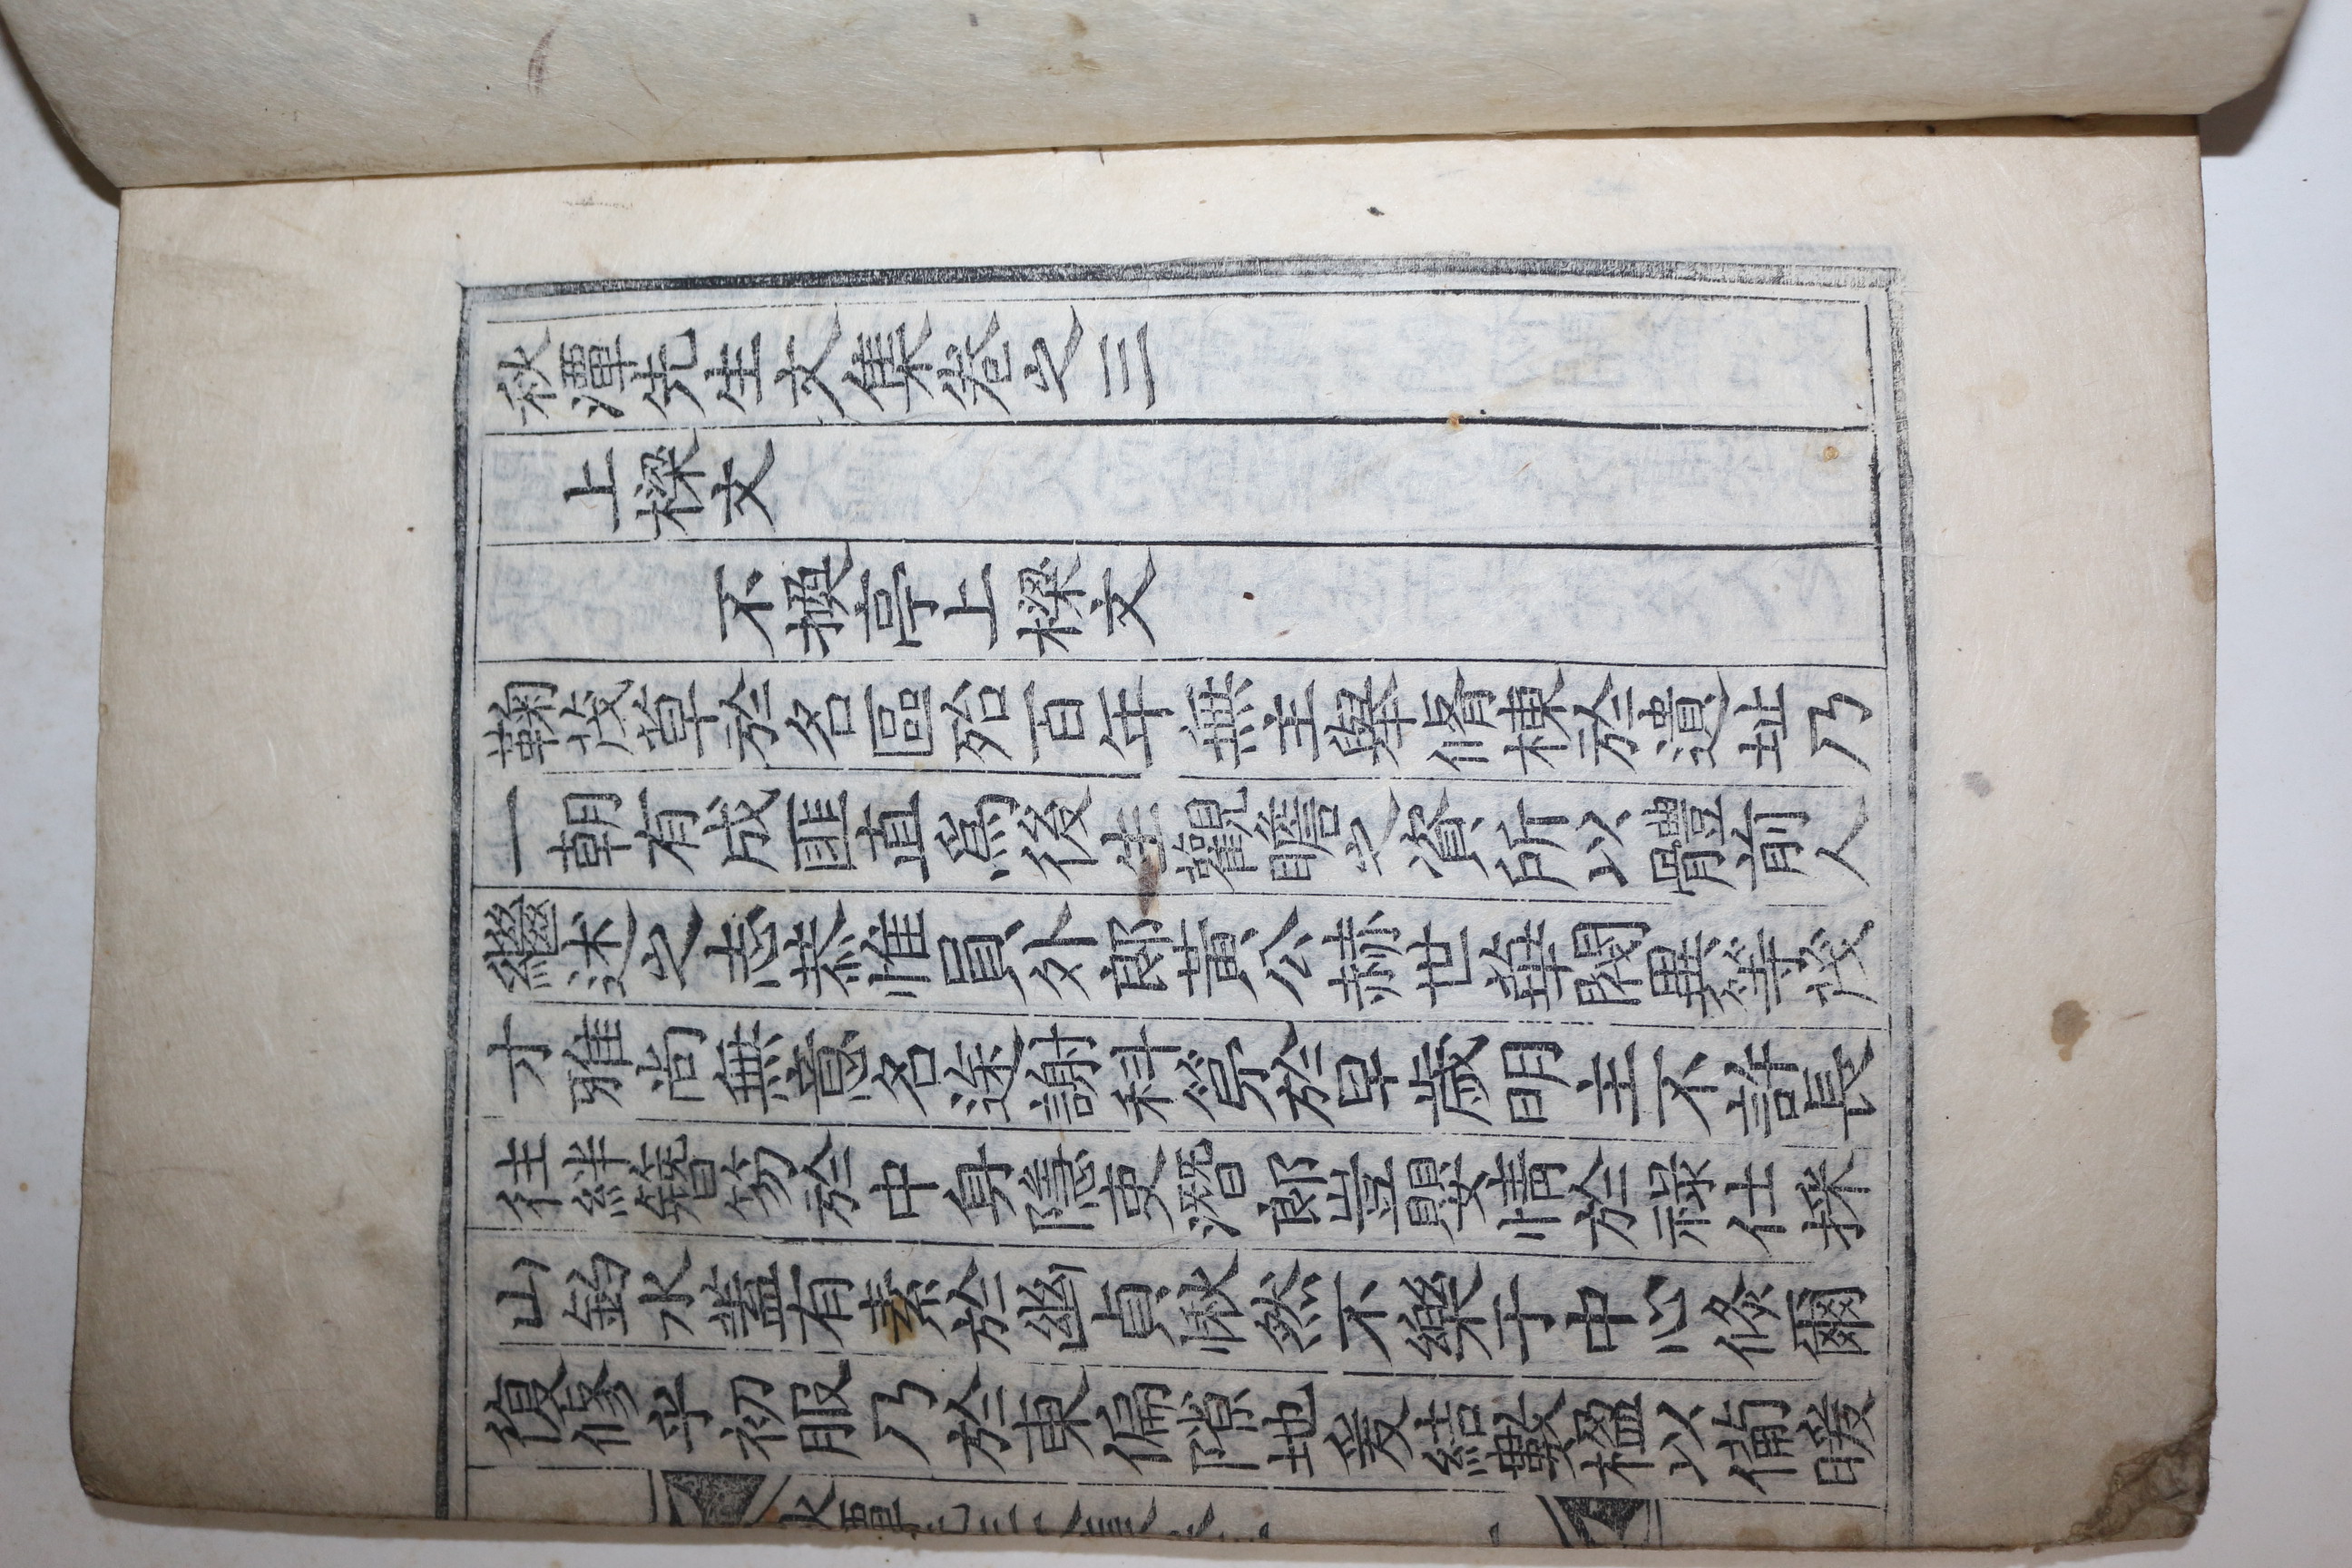 秋潭先生文集卷之三
上樑文
不換亭上樑文
鞠茂草於名區殆百年無主擧脩棟於遺址乃
一朝有成匪直爲後生觀瞻之資所以體前人
繼述之志恭惟員外郞黃公赫世華閥異等茂
才雅尚無意名途謝科第於早歲明主不許長
往絆簪笏於中身隱吏潛郞豈嬰情於祿仕採
山釣水蓋有素於幽貞愀然不樂于中心倏爾
復修乎初服乃於東偏隙地爰結數楹以備暖